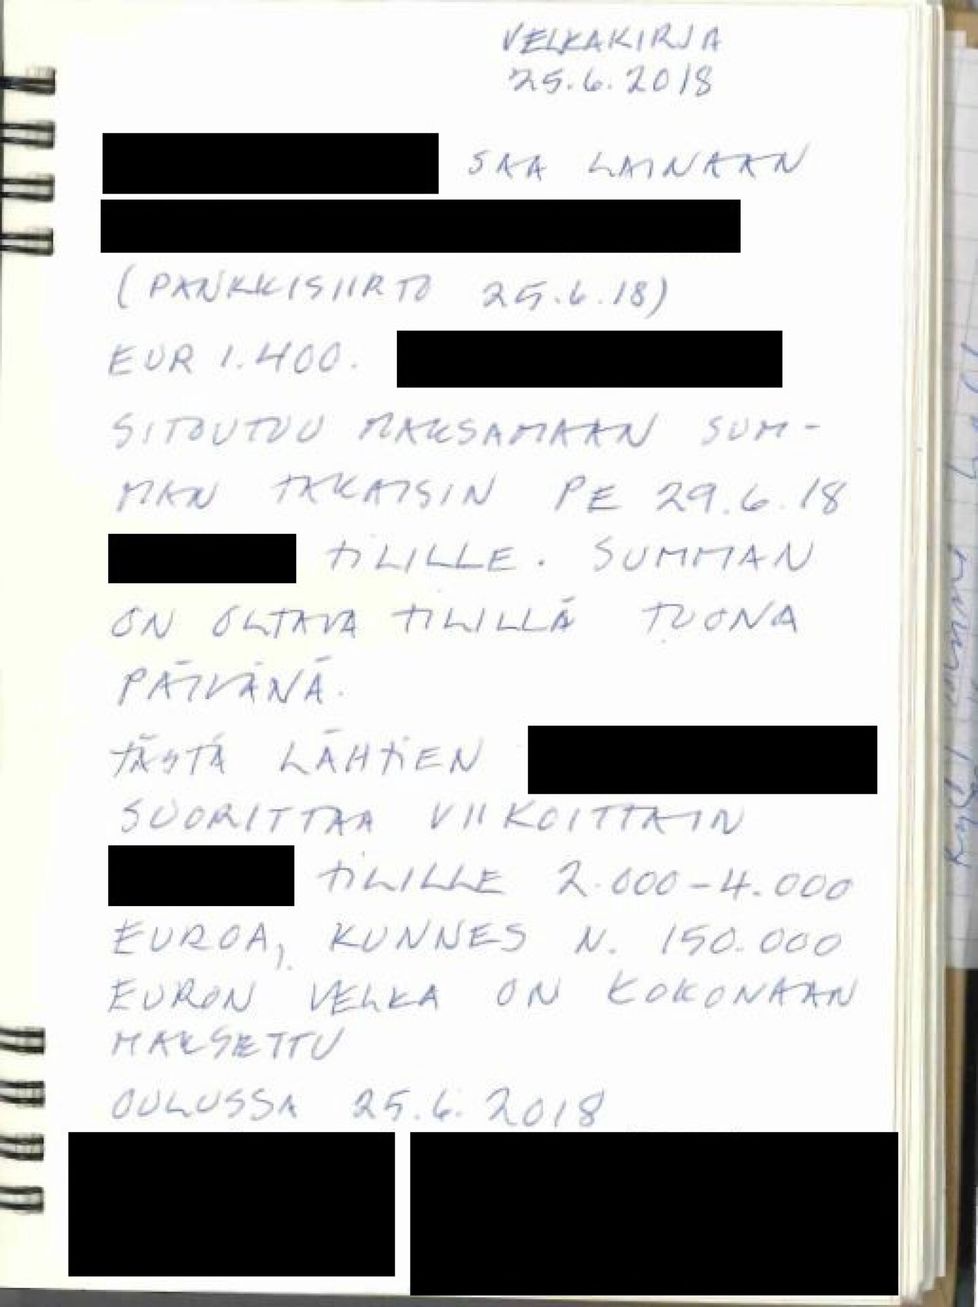 VELKAKIRJA
25.6.2018
SAA LAINAAN
(PANKKISIIRTO 25.6.18)
EUR 1.400.
SITOUTUU MAKSAMAAN SUM-
MAN TAKAISIN PE 29.6.18
TILILLE. SUMMAN
ON OLTAVA TILILLÄ TUONA
PÄIVÄNÄ.
TÄSTÄ LÄHTIEN
SUORITTAA VIIKOITTAIN
TILILLE 2.000-4.000
EUROA, KUNNES N. 150.000
EURON VELKA ON KOKONAAN
MAKSETTU
OULUSSA 25.6.2018